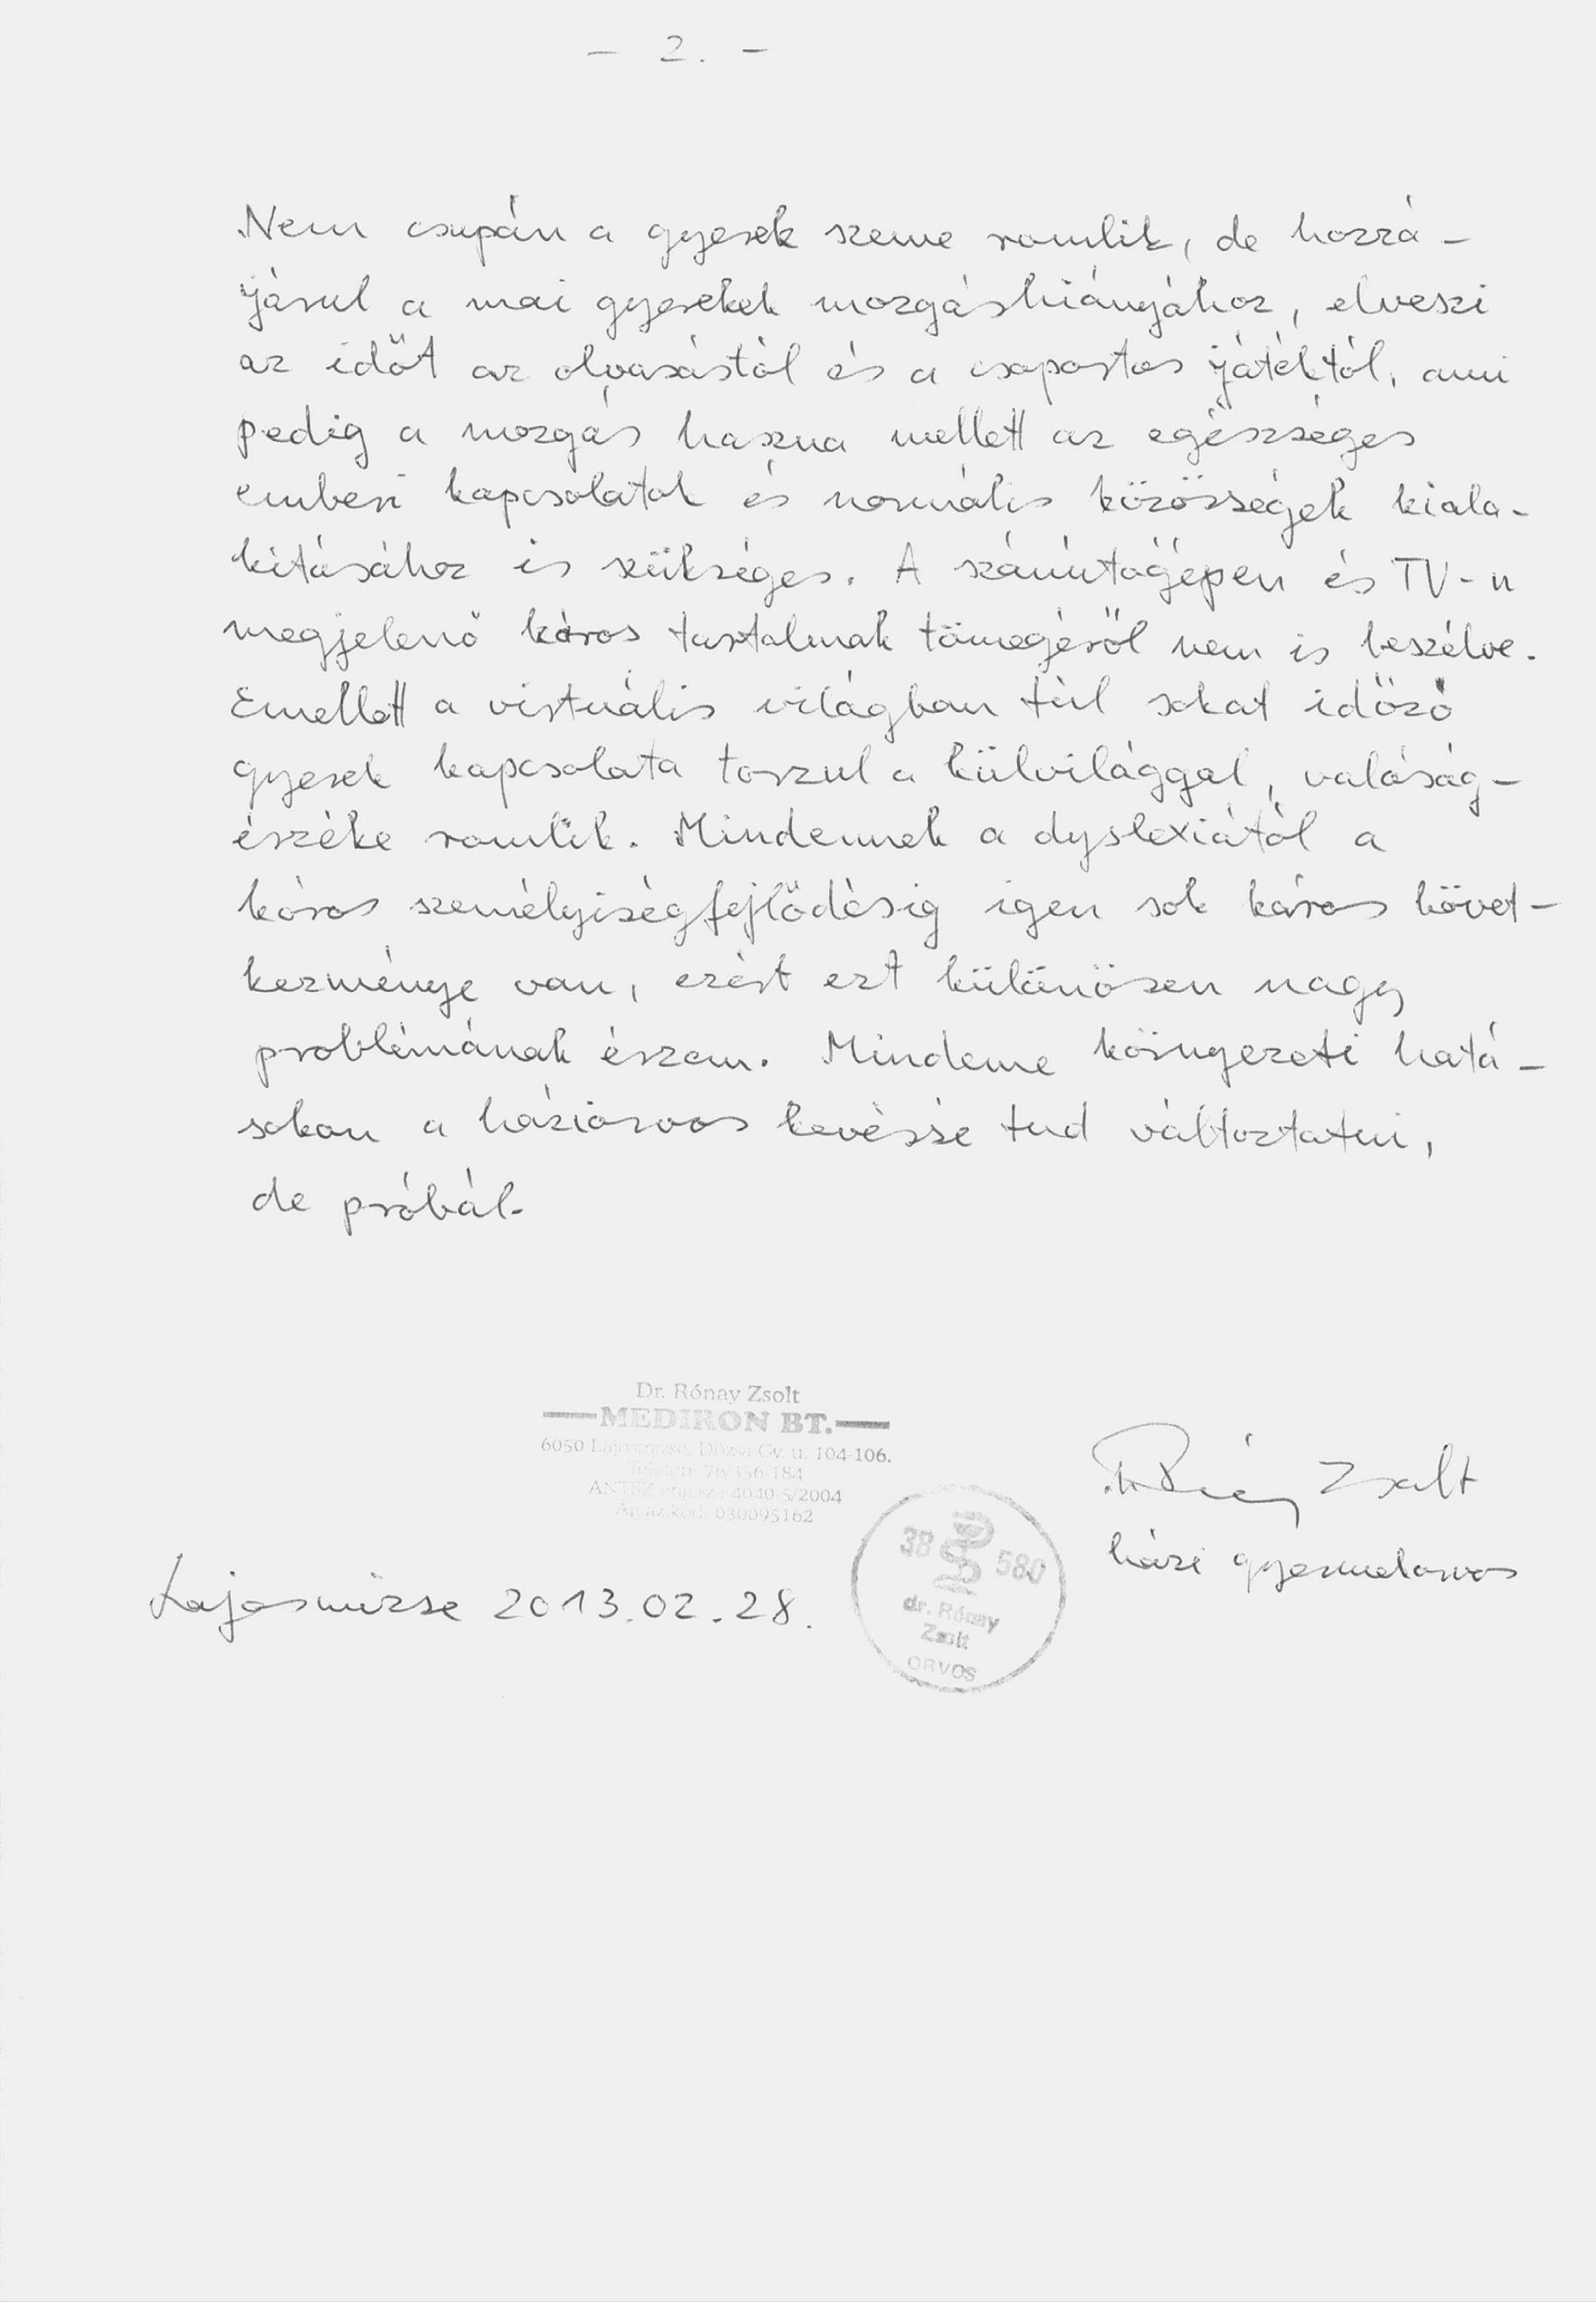 - 2. -
Nem csupán a gyerek szeme romlik, de hozzá-
járul a mai gyerekek mozgáshiányához, elveszi
az időt az olvasástól és a csoportos játéktól, ami
pedig a mozgás haszna mellett az egészséges
emberi kapcsolatok és normális közösségek kiala-
kításához is szükséges. A számítógépen és TV-n
megjelenő káros tartalmak tömegéről nem is beszélve.
Emellett a virtuális világban túl sokat időző
gyerek kapcsolata torzul a külvilággal, valóság-
érzéke romlik. Mindennek a dyslexiától a
kóros személyiségfejlődésig igen sok káros követ-
kezménye van, ezért ezt különösen nagy
problémának érzem. Mindeme környezeti hatá-
sokon a háziorvos kevéssé tud változtatni,
de próbál.
Dr. Rónay Zsolt
MEDIRON BT.
6050 Lajosmizse, Dózsa Gy. u. 104-106.
Telefon: 76/356-184
ANTSZ eng.sz.: 4040-5/2004
Ágazati kód: 030095162
Dr. Rónay Zsolt
házi gyermekorvos
38 580
dr. Rónay
Zsolt
ORVOS
Lajosmizse 2013.02.28.